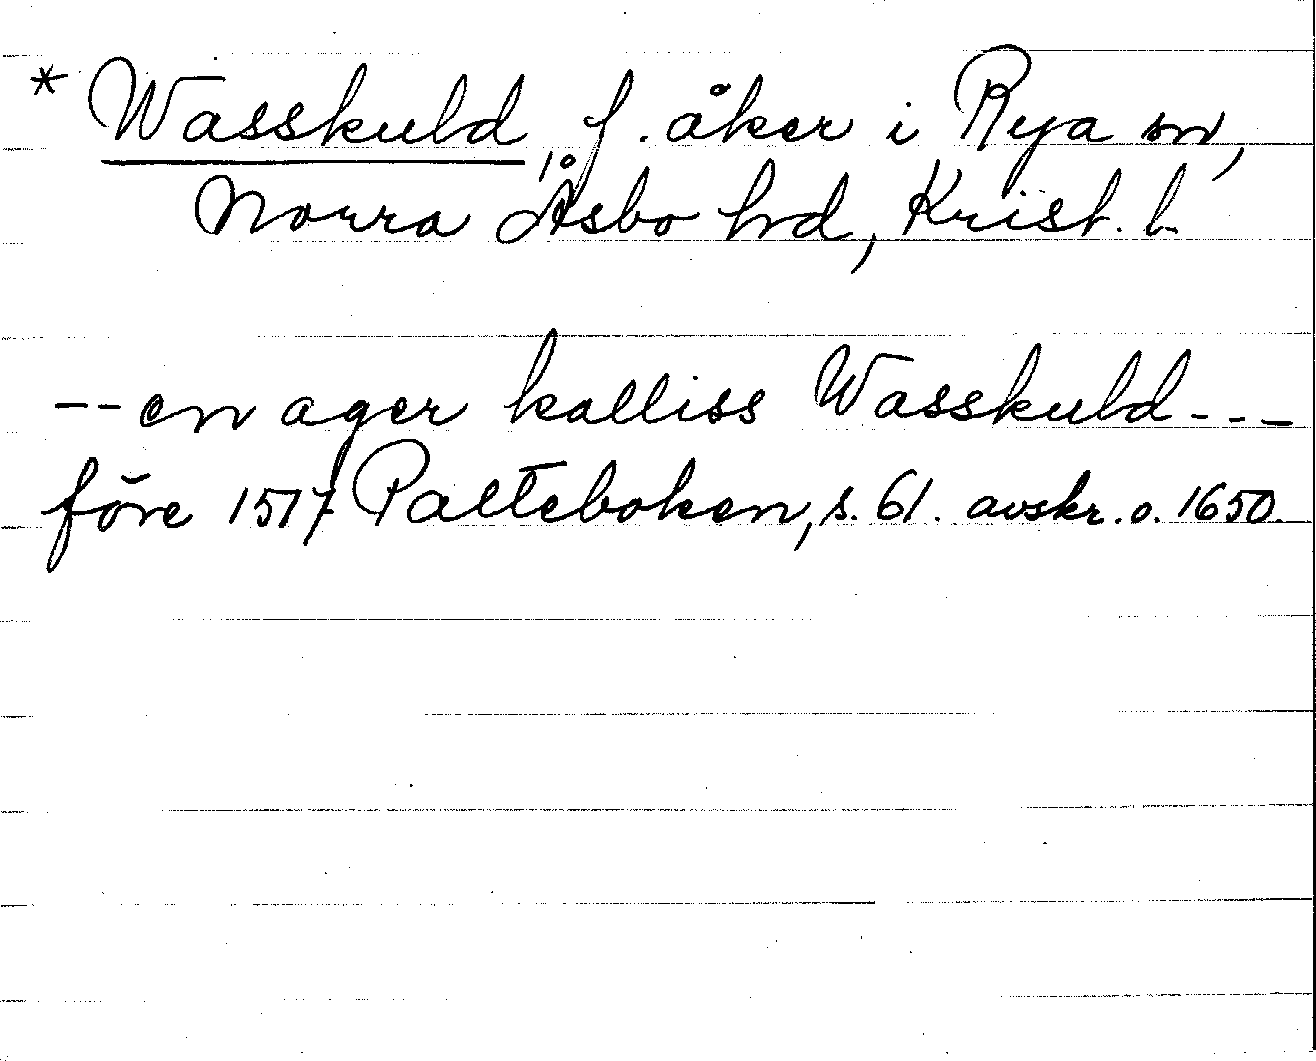 * Wasskuld, f. åker i Rya sn,
Norra Åsbo hrd, Krist. l.
-- en ager kalliss Wasskuld ---
före 1517 Palteboken, s. 61. avskr. o. 1650.